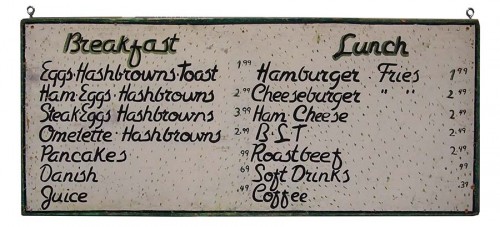 Breakfast
Eggs·Hashbrowns·Toast 1.99
Ham·Eggs·Hashbrowns 2.99
Steak·Eggs Hashbrowns 3.99
Omelette·Hashbrowns 2.99
Pancakes .99
Danish .69
Juice .99
Lunch
Hamburger · Fries 1.99
Cheeseburger " " 2.99
Ham·Cheese 2.99
B·L·T 2.49
Roastbeef 2.99
Soft Drinks .99
Coffee .39